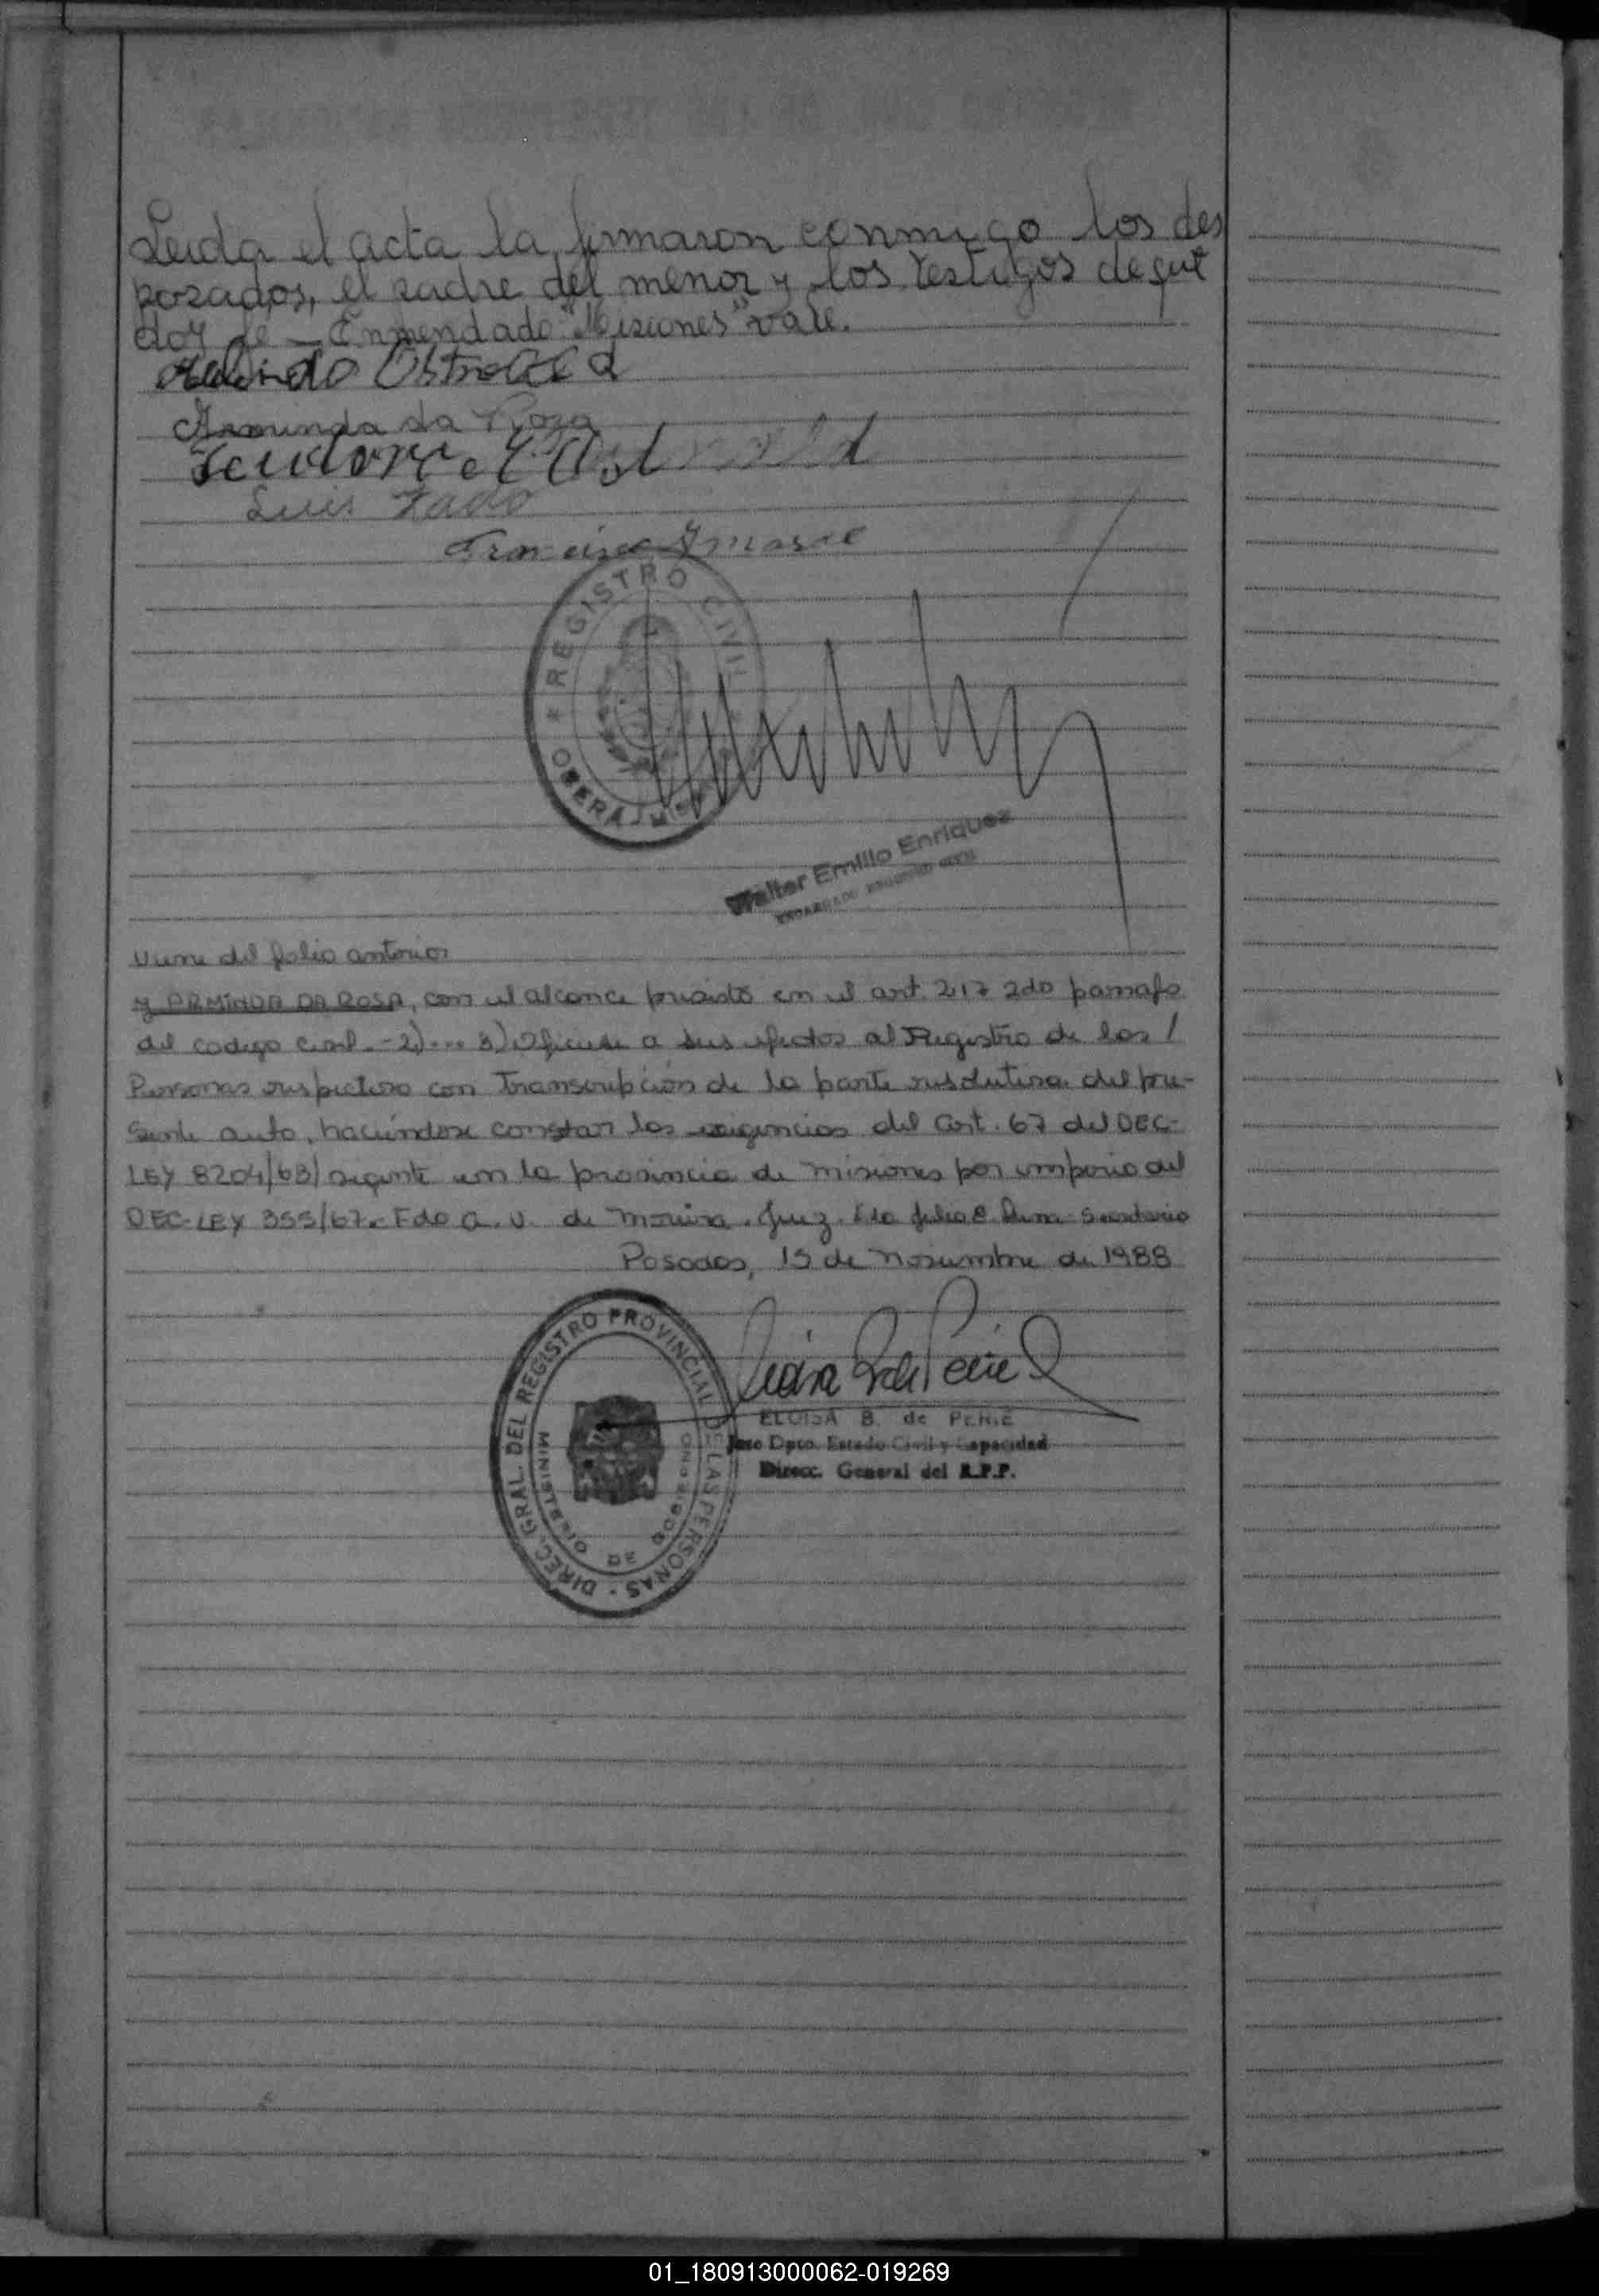 Leida el acta la firmaron conmigo los des
posados, el padre del menor y los testigos de que
doy fe — Enmendado "Misiones" vale.
Arminda da Roza
Luis
Francisco
REGISTRO CIVIL
OBERÁ
Walter Emilio Enriquez
ENCARGADO REGISTRO CIVIL
Viene del folio anterior
y ARMINDA DA ROSA, con el alcance previsto en el art. 217 2do parrafo
del codigo civil.- 2)... 3) Oficiese a sus efectos al Registro de las /
Personas respectivo con transcripción de la parte resolutiva del pre-
sente auto, haciendose constar las exigencias del art. 67 del DEC-
LEY 8204/63/ vigente en la provincia de misiones por imperio del
DEC-LEY 355/67.- Fdo A. V. de Moreira. Juez. Fdo Julio E. Secretario
Posadas, 15 de Noviembre de 1988
DIREC. GRAL. DEL REGISTRO PROVINCIAL DE LAS PERSONAS
MINISTERIO DE GOBIERNO
ELOISA B. de PERIÉ
Jefe Dpto. Estado Civil y Capacidad
Direcc. General del R.P.P.
01_180913000062-019269